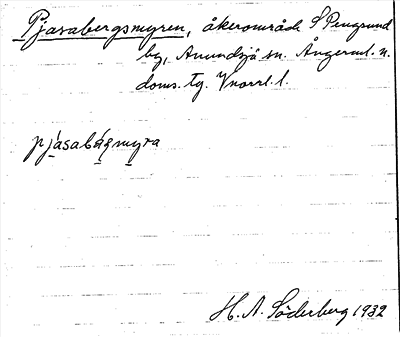 Pjasabergsmyren, åkerområde S Pengsund
by, Anundsjö sn. Ångerml. n.
doms. tg. Vnorrl. l.
pjásabágmyra
H. A. Söderberg 1932